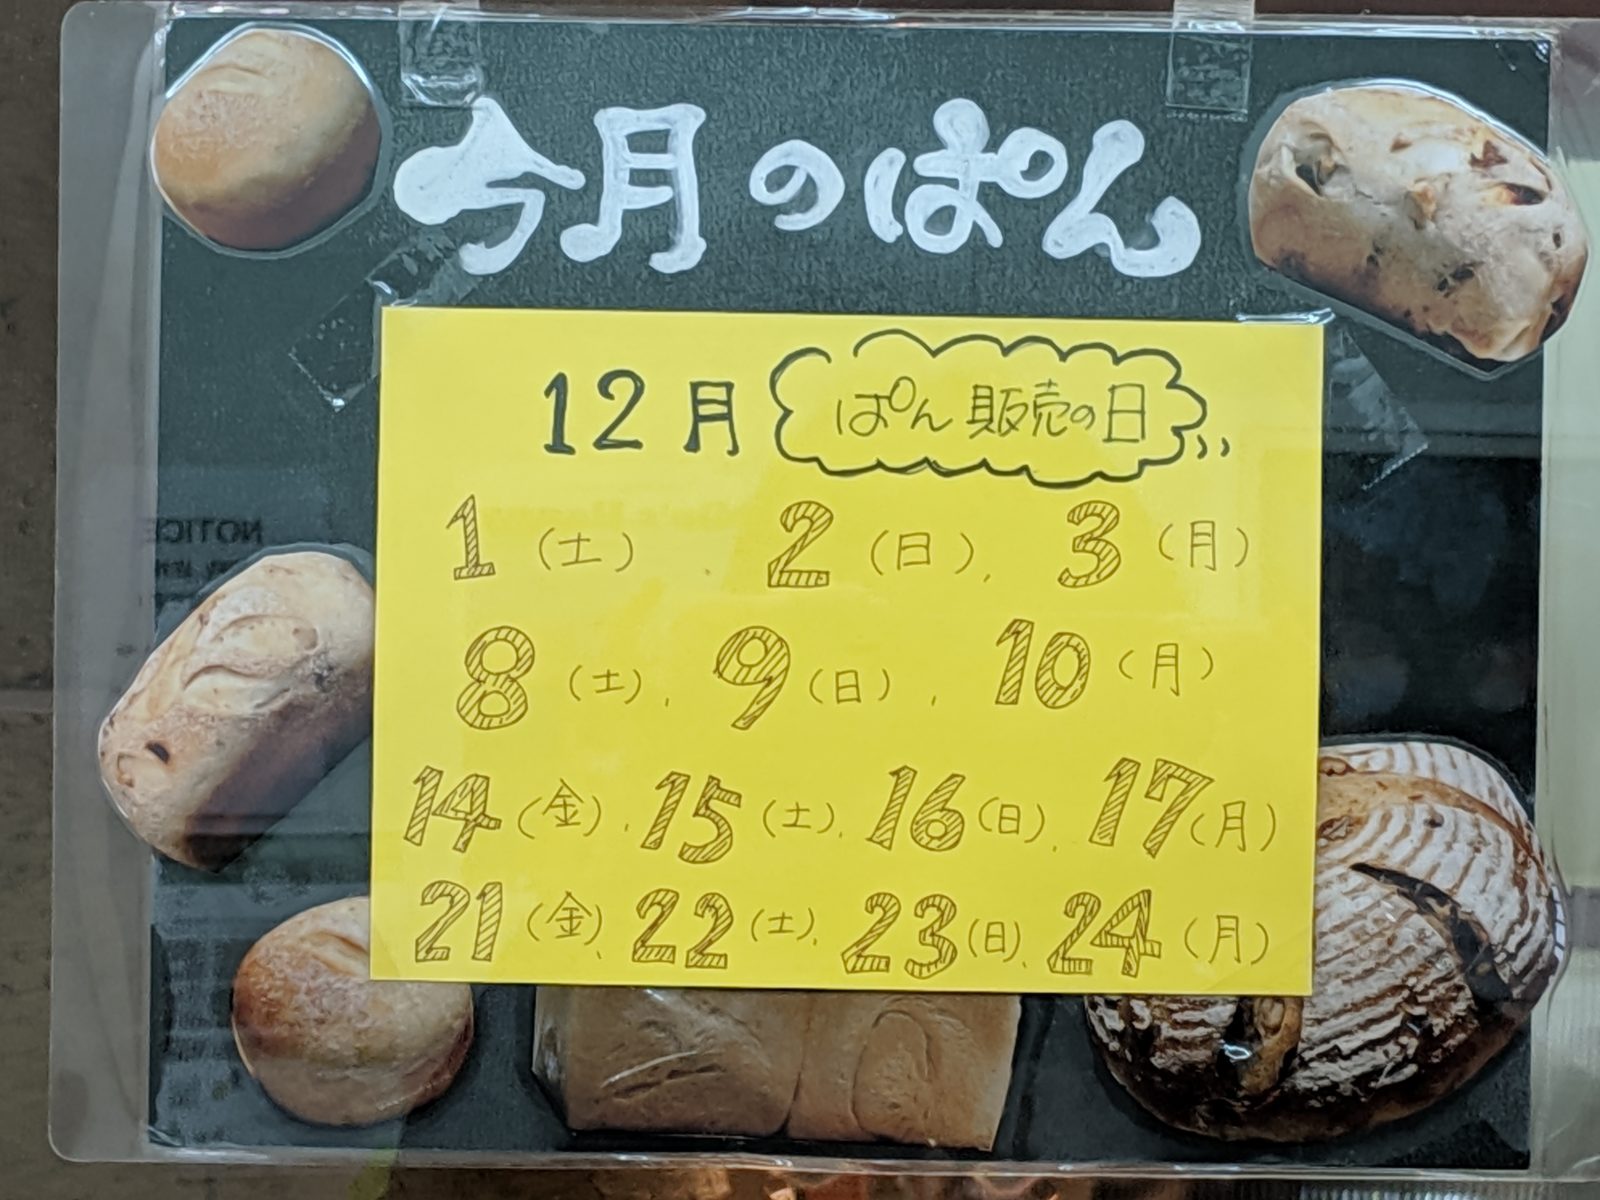 今月のぱん
12月 ぱん販売の日
1(土)、2(日)、3(月)
8(土)、9(日)、10(月)
14(金)、15(土)、16(日)、17(月)
21(金)、22(土)、23(日)、24(月)
NOTICE